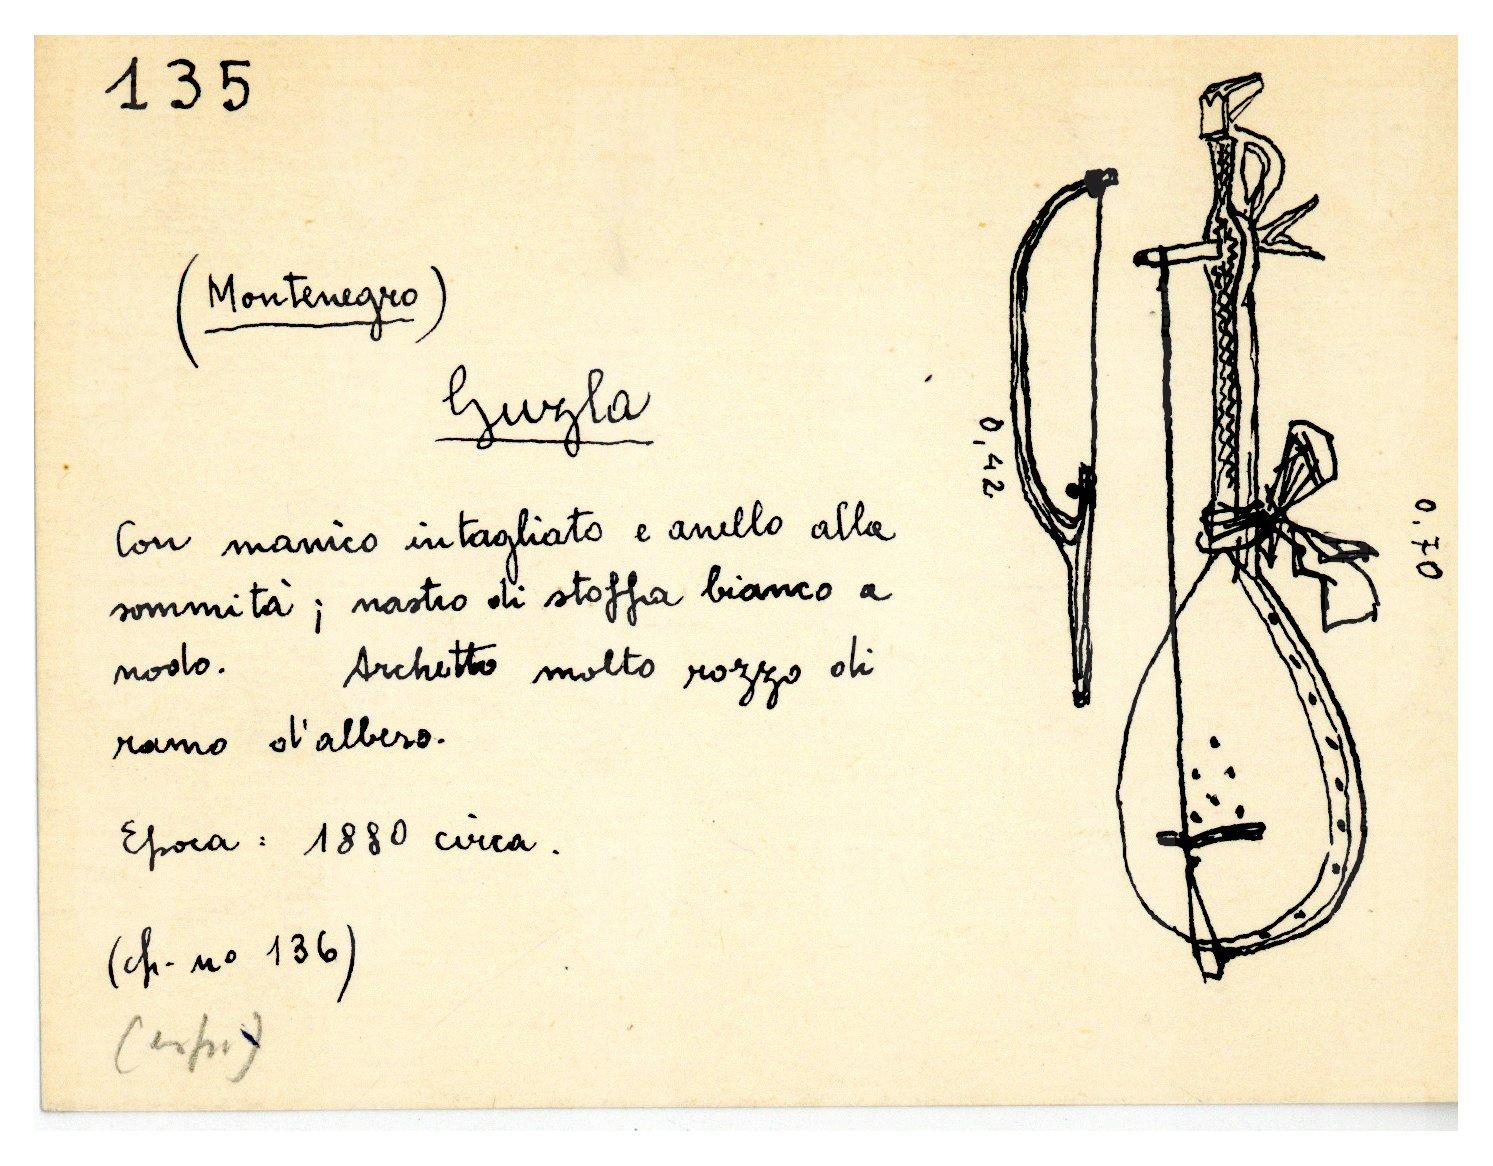 135
(Montenegro)
Guzla
0,42
0.70
Con manico intagliato e anello alla
sommità; nastro di stoffa bianco a
nodo. Archetto molto rozzo di
ramo d'albero.
Epoca: 1880 circa.
(cfr. nº 136)